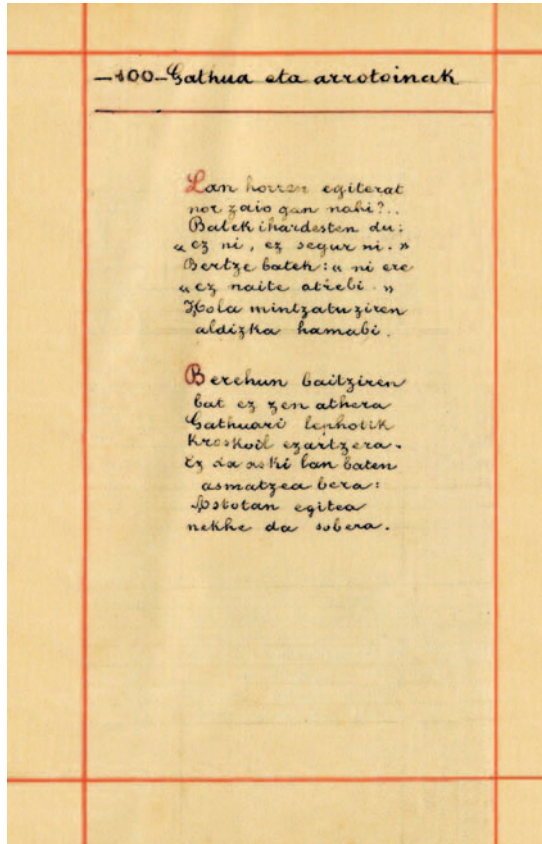 —100—Gathua eta arrotoinak
Lan horren egiterat
nor zaio gan nahi?..
Batek ihardesten du:
« ez ni, ez segur ni. »
Bertze batek: « ni ere
« ez naite atrebi. »
Hola mintzatu ziren
aldizka hamabi.
Berehun baitziren
bat ez zen athera
Gathuari lephotik
Kroskoil ezartzera.
Ez da aski lan baten
asmatzea bera:
Astotan egitea
nekhe da sobera.